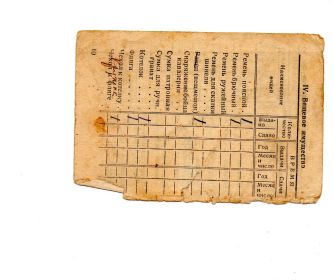 IV. Вещевое имущество
Наименование
вещей
Количество
ВРЕМЯ
Выдачи
Сдачи
Выдано
Сдано
Год
Месяц и число
Год
Месяц и число
Ремень поясной
Ремень брючный
Ремень ружейный
Ремень для скатки
шинели
Вещевой
Снаряжение
Сумка патронная
Сумка для ручн.
гранат
Котелок
Фляга
Чехол к котелку
Чехол к фляге